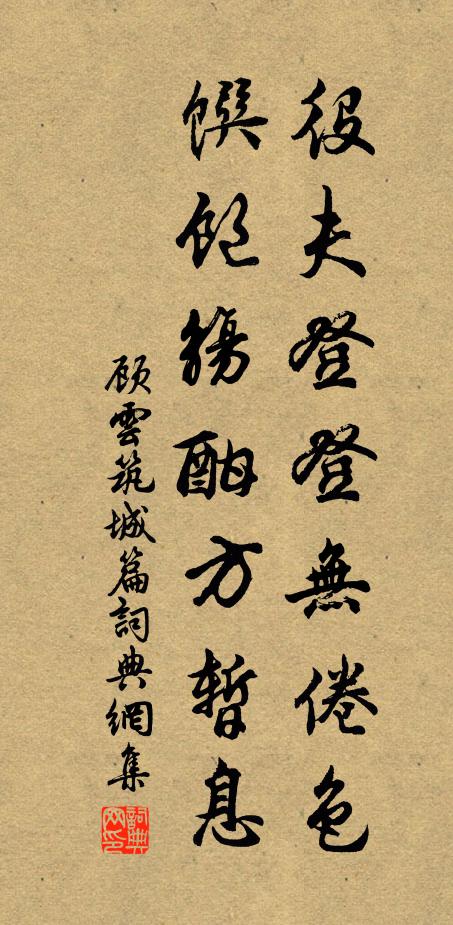 役夫登登無倦色
饌飽觴酣方暫息
顾雲筑城篇詞典網集
詞典网印